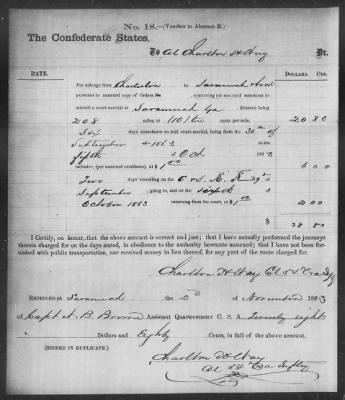 No. 18.—(Voucher to Abstract B.)
The Confederate States,
To Col Charlton H Way Dr.
DATE. DOLLARS. CTS.
For mileage from Charleston to Savannah
pursuant to annexed copy of Orders No.
attend a court-martial, at Savannah Ga distance being
208 miles, at (10) ten cents per mile, 20 80
Six days attendance on said court-martial, being from the 30th of
September 1863
fifth Oct 1863
inclusive, (per annexed certificate), at $1.00 6 00
Two days travelling on the C & S. R. R 29th
September going to, and on the sixth
October 1863 returning from the same, at $1.00 2 00
$ 28 80
I Certify, on honor, that the above account is correct and just; that I have actually performed the journeys
therein charged for on the days stated, in obedience to the authority hereunto annexed; that I have not been fur-
nished with public transportation, nor received money in lieu thereof, for any part of the route charged for.
Charlton H Way Col 54th Ga Regt
RECEIVED AT Savannah the 2d of November 1863
of Capt A. B. Assistant Quartermaster C. S. A. Twenty eight
Dollars and Eighty Cents, in full of the above account.
(SIGNED IN DUPLICATE.)
Charlton H Way
Col 54th Ga Infty